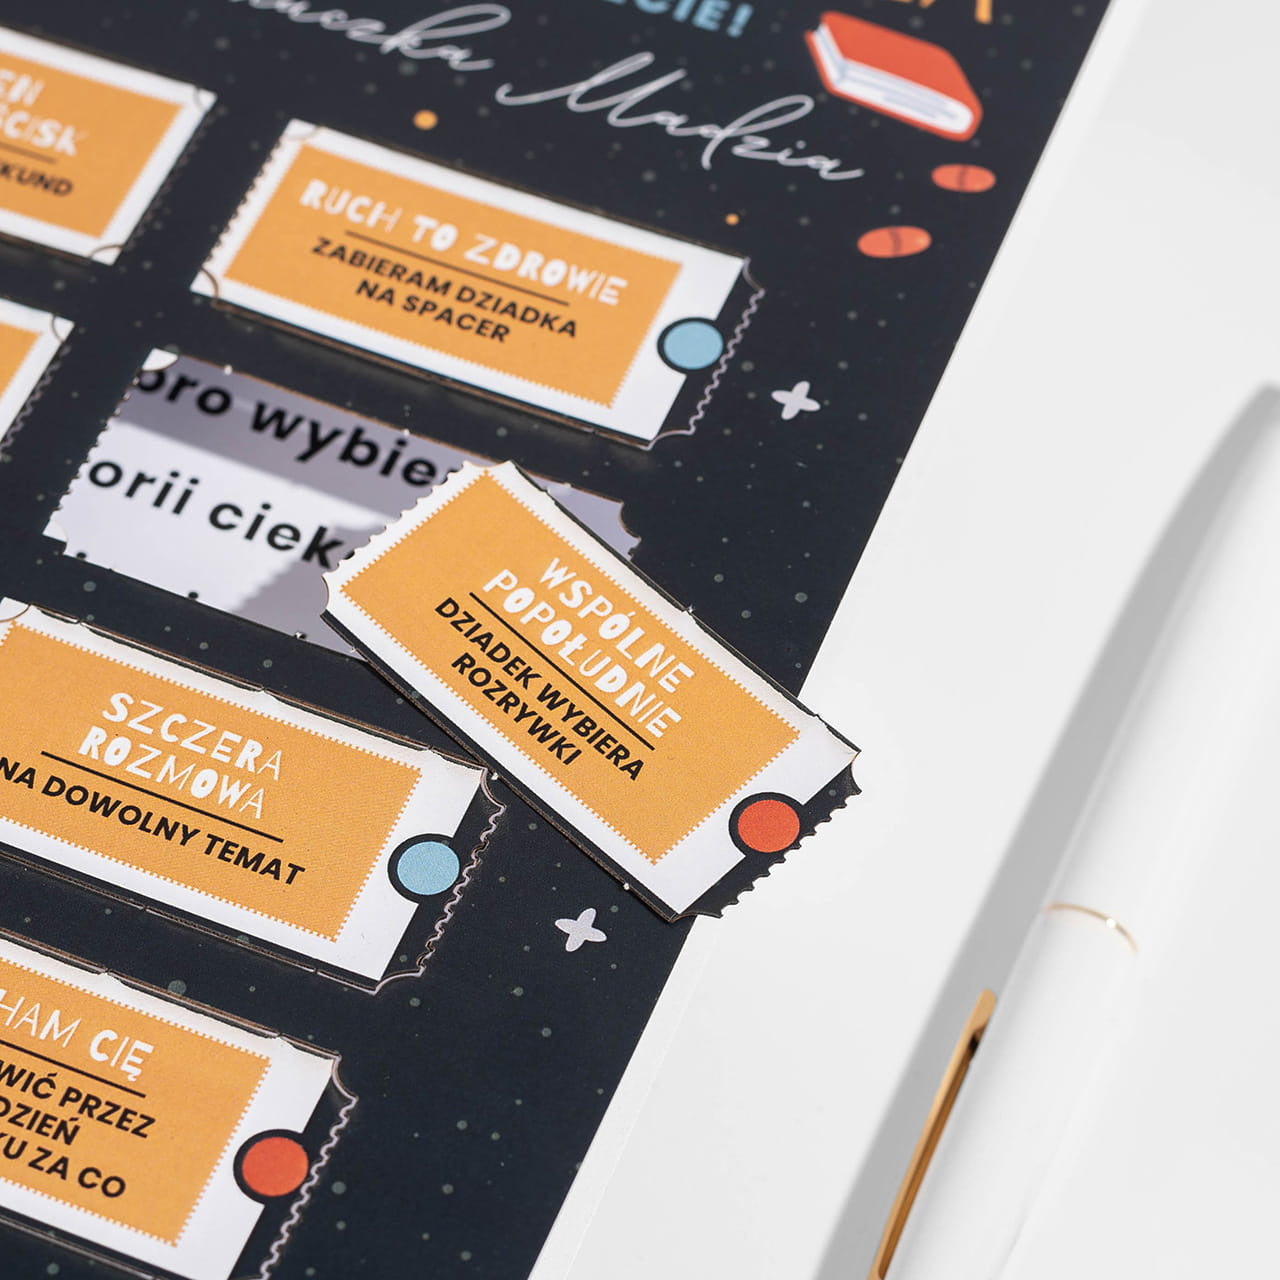 Madzia
RUCH TO ZDROWIE
ZABIERAM DZIADKA
NA SPACER
wybie
orii ciek
WSPÓLNE
POPOŁUDNIE
DZIADEK WYBIERA
ROZRYWKI
SZCZERA
ROZMOWA
NA DOWOLNY TEMAT
HAM CIĘ
WIĆ PRZEZ
DZIEŃ
KU ZA CO